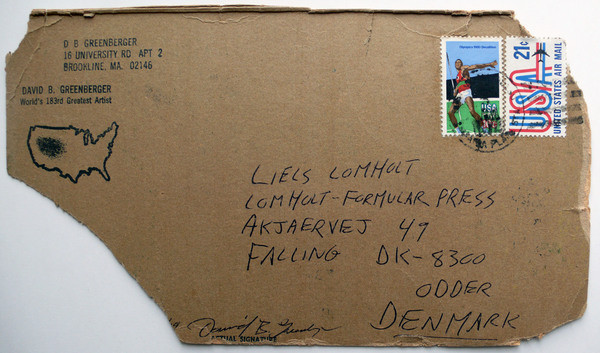 D B GREENBERGER
16 UNIVERSITY RD APT 2
BROOKLINE, MA. 02146
DAVID B. GREENBERGER
World's 183rd Greatest Artist
Olympics 1980 Decathlon
USA
21¢
USA
UNITED STATES AIR MAIL
LIELS LOMHOLT
LOMHOLT-FORMULAR PRESS
AKJAERVEJ 49
FALLING DK-8300
ODDER
DENMARK
David B.
ACTUAL SIGNATURE